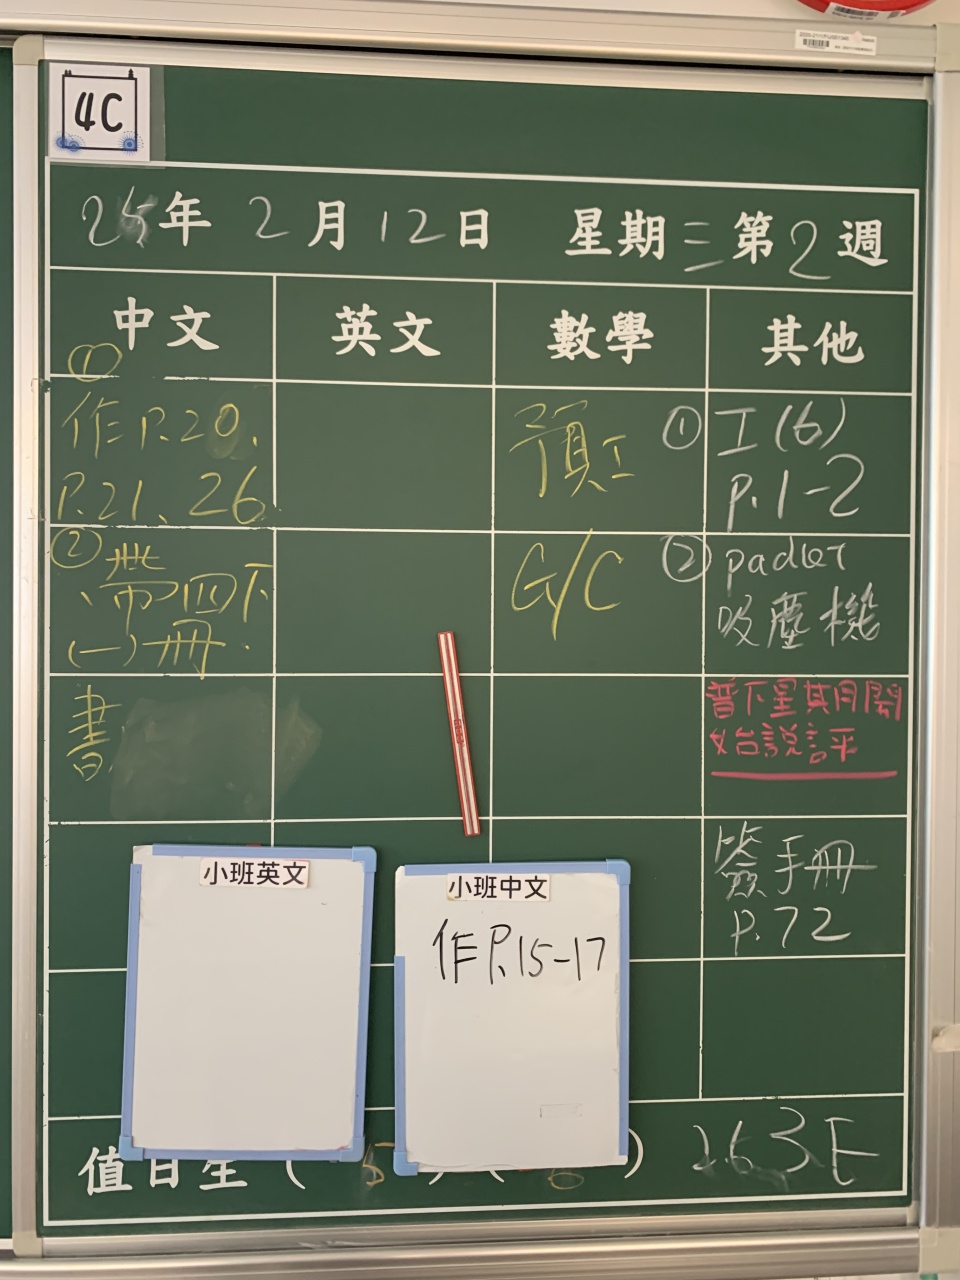 4C
25年 2月12日 星期三第2週
中文 英文 數學 其他
①
作P.20.
P.21、26
②帶四下
(一)冊.
書
預工
G/C
① 工(6)
P.1-2
② padlet
吸塵機
普下星其月開
始說評
簽手冊
P.72
小班英文
小班中文
作P.15-17
值日生 ( 5 ) ( 6 )